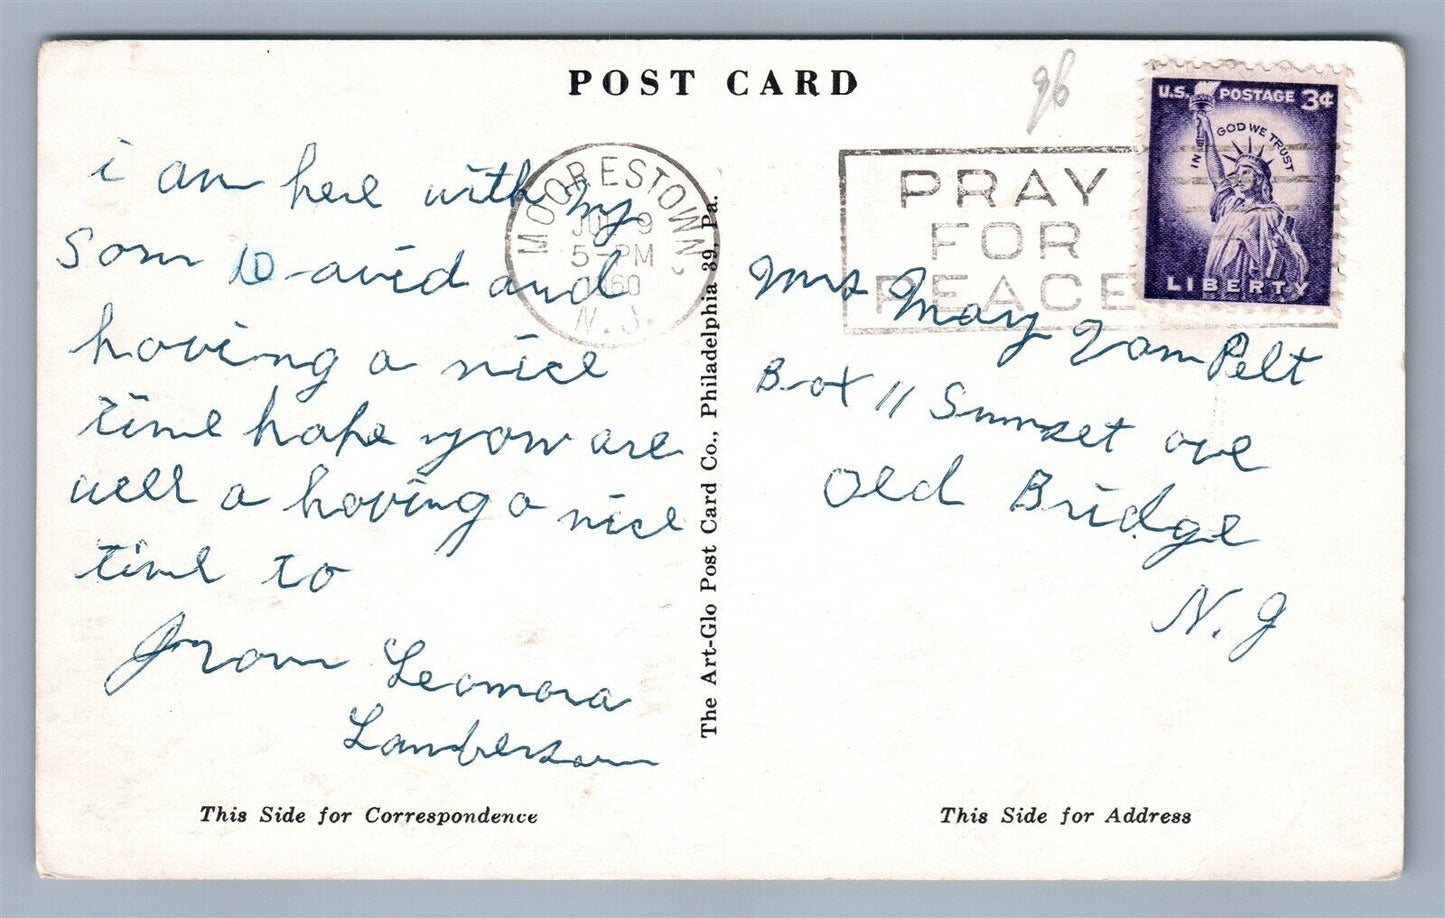 POST CARD
96
i am here with my
Son David and
having a nice
time hope you are
well a having a nice
time to
from Leonora
Lamberson
This Side for Correspondence
The Art-Glo Post Card Co., Philadelphia 39, Pa.
MOORESTOWN
9
5-PM
1960
N. J.
PRAY
FOR
PEACE
U.S. POSTAGE 3¢
IN GOD WE TRUST
LIBERTY
Mrs May Van Pelt
Box 11 Sunset ave
Old Bridge
N. J
This Side for Address